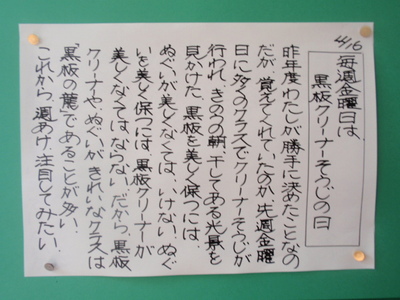 4/16
毎週金曜日は、
黒板クリーナーそうじの日
昨年度わたしが勝手に決めたことなの
だが、覚えてくれていたのか、先週金曜
日に多くのクラスでクリーナーそうじが
行われ、きのうの朝、干してある光景を
見かけた。黒板を美しく保つには、
ぬぐいが美しくなくては、いけない。ぬぐ
いを美しく保つには、黒板クリーナーが
美しくなくては、ならない。だから、黒板
クリーナや、ぬぐいがきれいなクラスは
「黒板の麓」であることが多い。
これから、週あけ、注目してみたい。